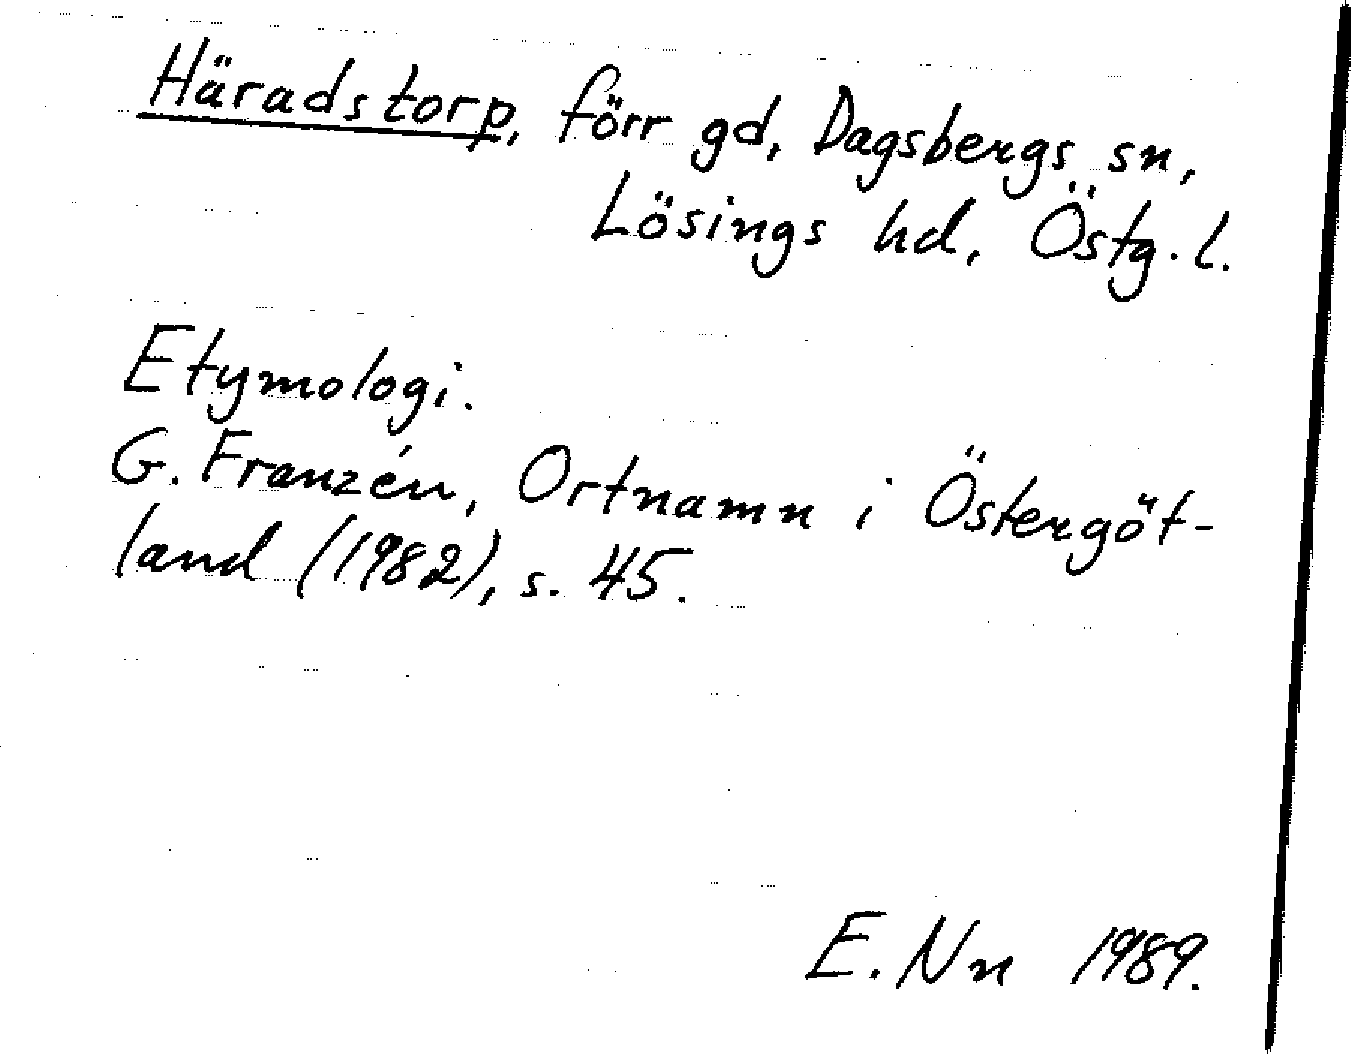 Häradstorp, förr gd, Dagsbergs sn,
Lösings hd, Östg. l.
Etymologi.
G. Franzén, Ortnamn i Östergöt-
land (1982), s. 45.
E. Nn 1989.